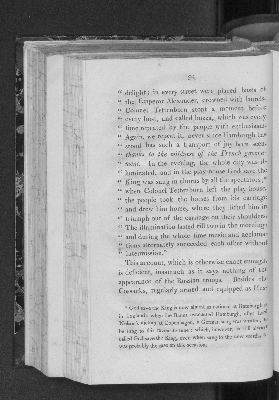 94
" delight; in every street were placed busts of
" the Emperor Alexander, crowned with laurels.
" Colonel Tettenborn stopt a moment before
" every bust, and called huzza, which was every
" time repeated by the people with enthusiasm.
" Again, we repeat it, never since Hamburgh has
" stood has such a transport of joy been seen,
" thanks to the mildness of the French govern-
" ment. In the evening, the whole city was il-
" luminated, and in the play-house God save the
" King was sung in chorus by all the spectators;*
" when Colonel Tettenborn left the play house,
" the people took the horses from his carriage
" and drew him home, where they lifted him in
" triumph out of the carriage on their shoulders.
" The illumination lasted till two in the morning;
" and during the whole time music and acclama-
" tions alternately succeeded each other without
" intermission."
This account, which is otherwise exact enough,
is deficient, inasmuch as it says nothing of the
appearance of the Russian troops. Besides the
Cossacks, regularly armed and equipped as Hus-
* God save the King is now almost as national at Hamburgh as
in England; when the Danes evacuated Hamburgh, after Lord
Nelson's victory at Copenhagen, a German song was written, to
be sung to this tune; which, however, is still always
called God save the King, even when sung to the new words:
was probably the case on this occasion.